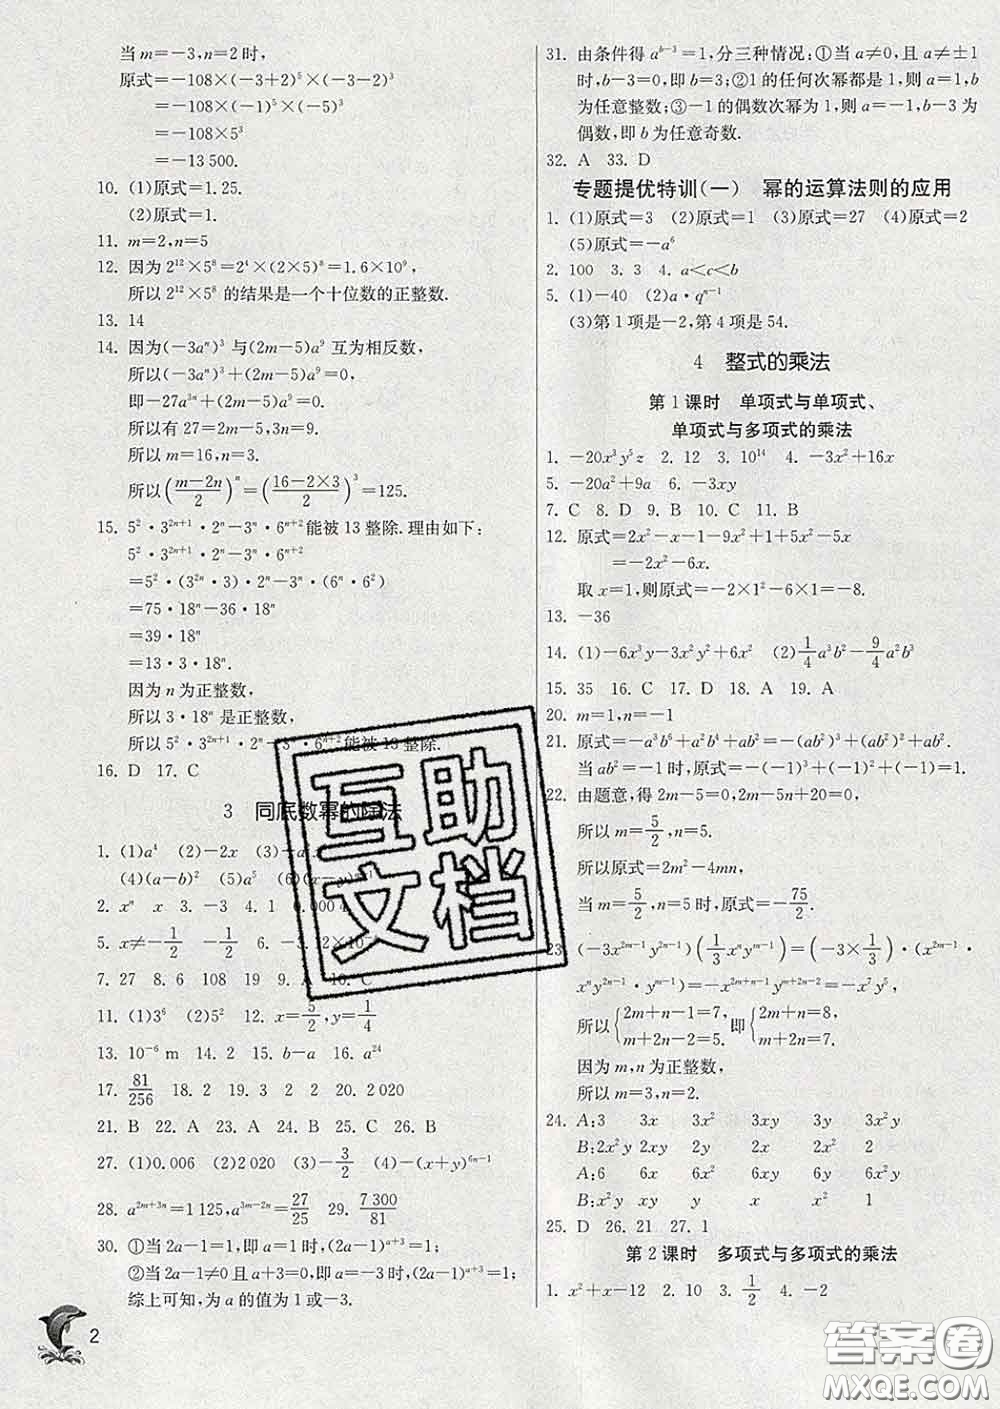 当 m=-3,n=2 时,
原式=-108×(-3+2)⁵×(-3-2)³
=-108×(-1)⁵×(-5)³
=-108×5³
=-13 500.
10. (1)原式=1.25.
(2)原式=1.
11. m=2,n=5
12. 因为 2¹²×5⁸=2⁴×(2×5)⁸=1.6×10⁹,
所以 2¹²×5⁸ 的结果是一个十位数的正整数.
13. 14
14. 因为(-3aⁿ)³ 与(2m-5)a⁹ 互为相反数,
所以(-3aⁿ)³+(2m-5)a⁹=0,
即-27a³ⁿ+(2m-5)a⁹=0.
所以有 27=2m-5,3n=9.
所以 m=16,n=3.
所以((m-2n)/2)ⁿ=((16-2×3)/2)³=125.
15. 5²·3²ⁿ⁺¹·2ⁿ-3ⁿ·6ⁿ⁺²能被 13 整除. 理由如下:
5²·3²ⁿ⁺¹·2ⁿ-3ⁿ·6ⁿ⁺²
=5²·(3²ⁿ·3)·2ⁿ-3ⁿ·(6ⁿ·6²)
=75·18ⁿ-36·18ⁿ
=39·18ⁿ
=13·3·18ⁿ.
因为 n 为正整数,
所以 3·18ⁿ 是正整数,
所以 5²·3²ⁿ⁺¹·2ⁿ-3ⁿ·6ⁿ⁺²能被 13 整除.
16. D 17. C
3 同底数幂的除法
1. (1)a⁴ (2)-2x (3)
(4)(a-b)² (5)a⁵ (6)
2. xⁿ x 3. -3 4. 1
5. x≠-1/2 -1/2 6.
7. 27 8. 6 108 19 9. A 10. C
11. (1)3⁶ (2)5² 12. x=5/2,y=1/4
13. 10⁻⁶ m 14. 2 15. b-a 16. a²⁴
17. 81/256 18. 2 19. 3 2 2 20. 2 020
21. B 22. A 23. D 24. A 25. C 26. B
27. (1)0.006 (2)2 020 (3)-3/2 (4)-(x+y)⁶ⁿ⁻¹
28. a²ᵐ⁺³ⁿ=1 125,a³ᵐ⁻²ⁿ=27/25 29. 7 300/81
30. ①当 2a-1=1,即 a=1 时,(2a-1)ᵃ⁺³=1;
②当 2a-1≠0 且 a+3=0,即 a=-3 时,(2a-1)ᵃ⁺³=1;
综上可知,为 a 的值为 1 或-3.
2
31. 由条件得 aᵇ⁻³=1,分三种情况:①当 a≠0,且 a≠±1
时,b-3=0,即 b=3;②1 的任何次幂都是 1,则 a=1,b
为任意整数;③-1 的偶数次幂为 1,则 a=-1,b-3 为
偶数,即 b 为任意奇数.
32. A 33. D
专题提优特训(一) 幂的运算法则的应用
1. (1)原式=3 (2)原式=1 (3)原式=27 (4)原式=2
(5)原式=-a⁶
2. 100 3. 3 4. a<c<b
5. (1)-40 (2)a·qⁿ⁻¹
(3)第 1 项是-2,第 4 项是 54.
4 整式的乘法
第 1 课时 单项式与单项式、
单项式与多项式的乘法
1. -20x³y⁵z 2. 12 3. 10¹⁴ 4. -3x²+16x
5. -20a²+9a 6. -3xy
7. C 8. D 9. B 10. C 11. B
12. 原式=2x²-x-1-9x²+1+5x²-5x
=-2x²-6x.
取 x=1,则原式=-2×1²-6×1=-8.
13. -36
14. (1)-6x³y-3x²y²+6x² (2)1/4a³b²-9/4a²b³
15. 35 16. C 17. D 18. A 19. A
20. m=1,n=-1
21. 原式=-a³b⁶+a²b⁴+ab²=-(ab²)³+(ab²)²+ab².
当 ab²=-1 时,原式=-(-1)³+(-1)²+(-1)=1.
22. 由题意,得 2m-5=0,n-5=0,
所以 m=5/2,n=5.
所以原式=2m²-4mn,
当 m=5/2,n=5 时,原式=-75/2.
23. (-3x²ᵐ⁻¹y²ⁿ⁻¹)(1/3xⁿyᵐ⁻¹)=(-3×1/3)·(x²ᵐ⁻¹·
xⁿy²ⁿ⁻¹·yᵐ⁻¹)=-x²ᵐ⁺ⁿ⁻¹yᵐ⁺²ⁿ⁻²=-x⁷y⁵,
所以{2m+n-1=7, m+2n-2=5. 即{2m+n=8, m+2n=7.
因为 m,n 为正整数,
所以 m=3,n=2.
24. A:3 3x 3x² 3xy 3y 3x²y
B:2x²y 2xy 2y 2x 2x² 2
A:6 6x 6x² 6xy 6y 6x²y
B:x²y xy y x x² 1
25. D 26. 21 27. 1
第 2 课时 多项式与多项式的乘法
1. x²+x-12 2. 10 3. 1/2 4. -2
互助
文档
答案圈
MXQE.COM